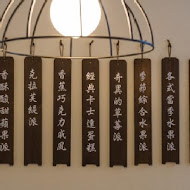 各式當季水果派
季節綜合水果派
奇異的草莓派
經典卡士達蛋糕
香蕉巧克力戚風
克拉芙緹派
香酥酸甜蘋果派